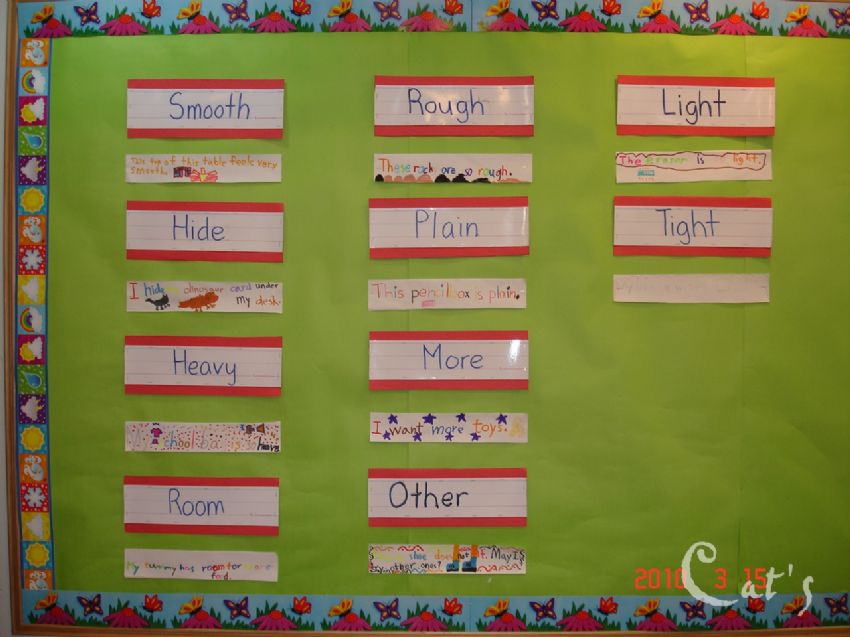 Smooth
This top of this table feels very
smooth.
Hide
I hide my dinosaur card under
my desk.
Heavy
is
Room
My tummy has room for more
food.
Rough
These rock are so rough.
Plain
This pencil box is plain.
More
I want more toys.
Other
shoe does not fit. May I
try other ones?
Light
The eraser is light.
Tight
2010 3 15
Cat's